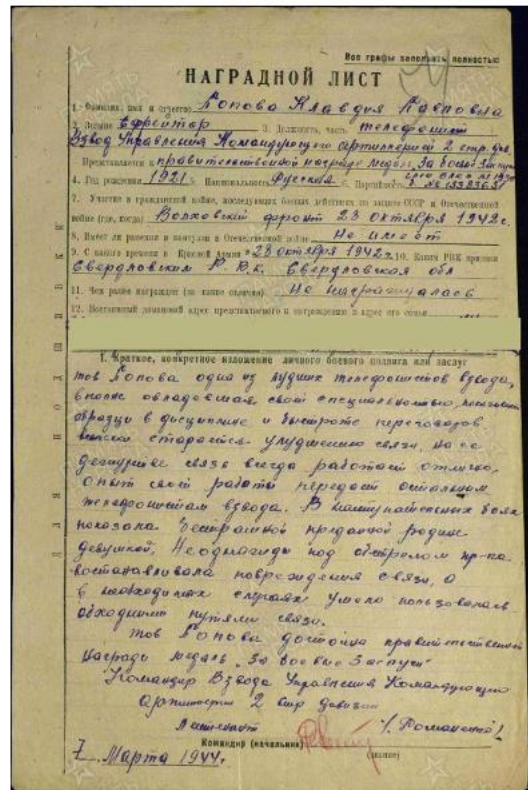 Все графы заполнять полностью
НАГРАДНОЙ ЛИСТ
1. Фамилия, имя и отчество Попова Клавдия Павловна
2. Звание Ефрейтор 3. Должность, часть телефонист
Взвод Управления Командующего артиллерией 2 стр. див.
Представляется к правительственной награде медаль За боевые заслуги
4. Год рождения 1921 5. Национальность Русская 6. Партийность
7. Участие в гражданской войне, последующих боевых действиях по защите СССР и Отечественной
войне (где, когда) Волховский фронт 23 октября 1942 г.
8. Имеет ли ранения и контузии в Отечественной войне Не имеет
9. С какого времени в Красной Армии 23 октября 1942 г. 10. Каким РВК призван
Свердловским Р.В.К. Свердловская обл
11. Чем ранее награжден (за какие отличия) Не награждалась
12. Постоянный домашний адрес представляемого к награждению и адрес его семьи
I. Краткое, конкретное изложение личного боевого подвига или заслуг
тов Попова одна из лучших телефонистов взвода,
вполне овладевшая своей специальностью,
образцы в дисциплине и быстроте переговоров
старается улучшению связи. На ее
дежурстве связь всегда работает отлично,
опыт своей работы передает остальным
телефонистам взвода. В наступательных боях
показала бесстрашной преданной родине
девушкой. Неоднократно под обстрелом пр-ка
востанавливала повреждения связи, а
в необходимых случаях умело пользовалась
обходными путями связи.
тов Попова достойна правительственной
награды медаль "За боевые заслуги"
Командир Взвода Управления Командующего
Артиллерии 2 стр дивизии
Лейтенант /Романенко/
Командир (начальник)
(звание)
7 Марта 1944 г.
ДЛЯ ПОДШИВКИ